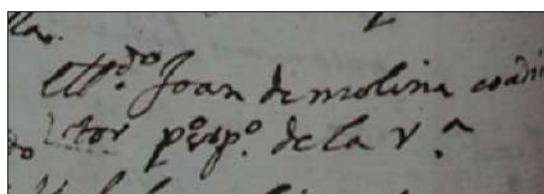 lla.
Ldo. Joan de molina coadiu
tor perpo. de la Va.